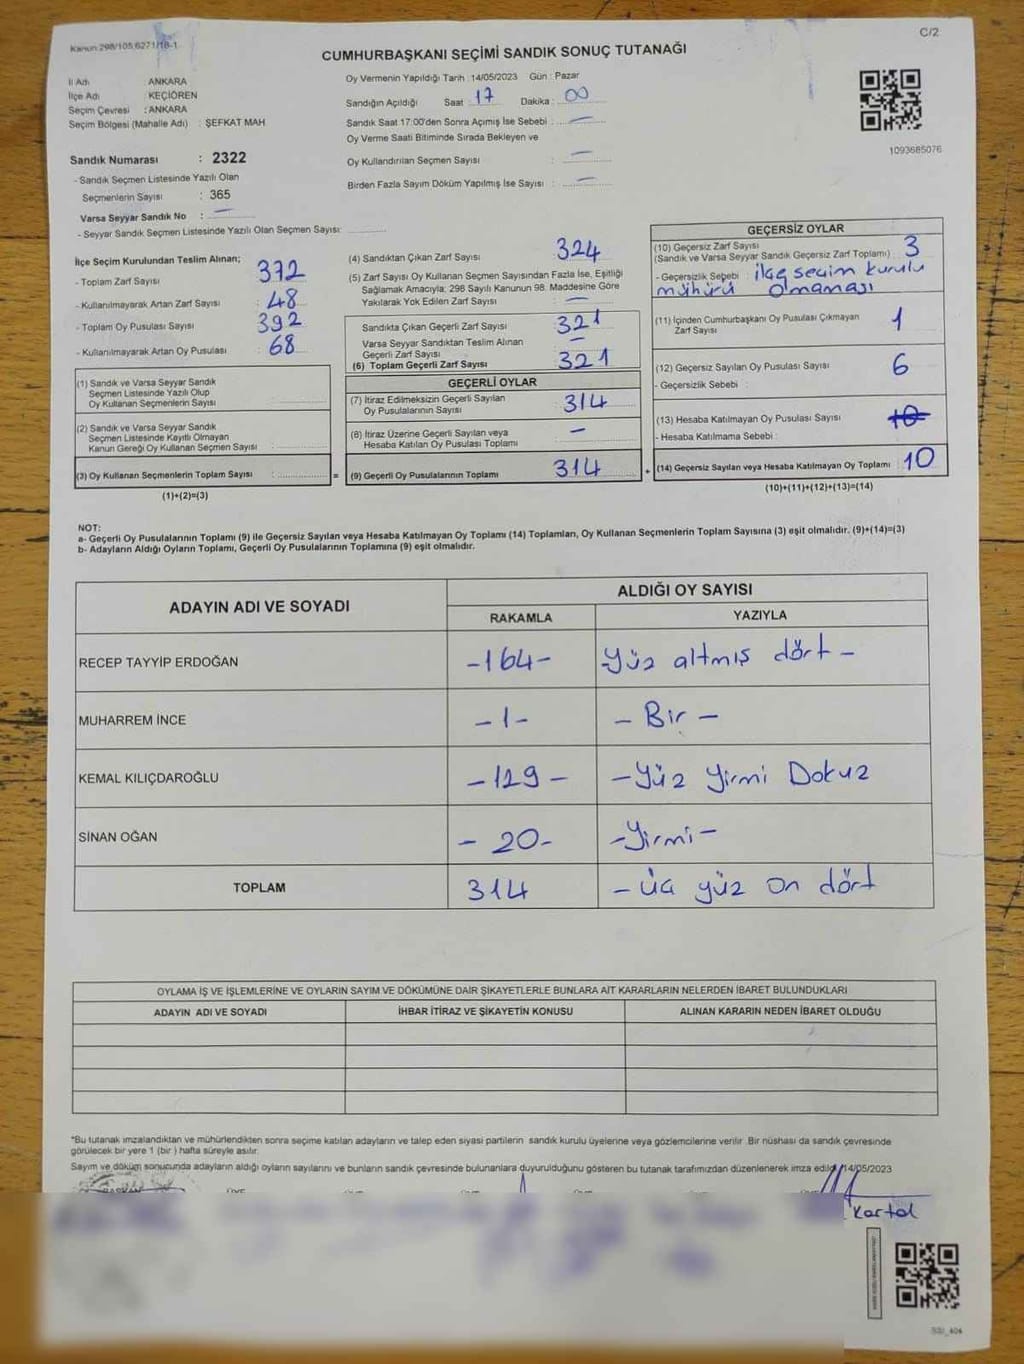 Kanun:298/105,6271/18-1
C/2
CUMHURBAŞKANI SEÇİMİ SANDIK SONUÇ TUTANAĞI
İl Adı : ANKARA
İlçe Adı : KEÇİÖREN
Seçim Çevresi : ANKARA
Seçim Bölgesi (Mahalle Adı) : ŞEFKAT MAH
Sandık Numarası : 2322
- Sandık Seçmen Listesinde Yazılı Olan
Seçmenlerin Sayısı : 365
Varsa Seyyar Sandık No : —
- Seyyar Sandık Seçmen Listesinde Yazılı Olan Seçmen Sayısı:
Oy Vermenin Yapıldığı Tarih : 14/05/2023 Gün : Pazar
Sandığın Açıldığı Saat : 17 Dakika : 00
Sandık Saat 17:00'den Sonra Açımış İse Sebebi : —
Oy Verme Saati Bitiminde Sırada Bekleyen ve
Oy Kullandırılan Seçmen Sayısı : —
Birden Fazla Sayım Döküm Yapılmış İse Sayısı : —
1093685076
İlçe Seçim Kurulundan Teslim Alınan;
- Toplam Zarf Sayısı : 372
- Kullanılmayarak Artan Zarf Sayısı : 48
- Toplam Oy Pusulası Sayısı : 392
- Kullanılmayarak Artan Oy Pusulası : 68
(1) Sandık ve Varsa Seyyar Sandık
Seçmen Listesinde Yazılı Olup
Oy Kullanan Seçmenlerin Sayısı :
(2) Sandık ve Varsa Seyyar Sandık
Seçmen Listesinde Kayıtlı Olmayan
Kanun Gereği Oy Kullanan Seçmen Sayısı :
(3) Oy Kullanan Seçmenlerin Toplam Sayısı : =
(1)+(2)=(3)
(4) Sandıktan Çıkan Zarf Sayısı : 324
(5) Zarf Sayısı Oy Kullanan Seçmen Sayısından Fazla İse, Eşitliği
Sağlamak Amacıyla; 298 Sayılı Kanunun 98. Maddesine Göre
Yakılarak Yok Edilen Zarf Sayısı : —
Sandıkta Çıkan Geçerli Zarf Sayısı : 321
Varsa Seyyar Sandıktan Teslim Alınan
Geçerli Zarf Sayısı : —
(6) Toplam Geçerli Zarf Sayısı : 321
GEÇERLİ OYLAR
(7) İtiraz Edilmeksizin Geçerli Sayılan
Oy Pusulalarının Sayısı : 314
(8) İtiraz Üzerine Geçerli Sayılan veya
Hesaba Katılan Oy Pusulası Toplamı : —
(9) Geçerli Oy Pusulalarının Toplamı : 314 +
GEÇERSİZ OYLAR
(10) Geçersiz Zarf Sayısı
(Sandık ve Varsa Seyyar Sandık Geçersiz Zarf Toplamı) : 3
- Geçersizlik Sebebi : ilçe seçim kurulu
mühürü olmaması
(11) İçinden Cumhurbaşkanı Oy Pusulası Çıkmayan
Zarf Sayısı : 1
(12) Geçersiz Sayılan Oy Pusulası Sayısı : 6
- Geçersizlik Sebebi :
(13) Hesaba Katılmayan Oy Pusulası Sayısı : 10
- Hesaba Katılmama Sebebi :
(14) Geçersiz Sayılan veya Hesaba Katılmayan Oy Toplamı : 10
(10)+(11)+(12)+(13)=(14)
NOT:
a- Geçerli Oy Pusulalarının Toplamı (9) ile Geçersiz Sayılan veya Hesaba Katılmayan Oy Toplamı (14) Toplamları, Oy Kullanan Seçmenlerin Toplam Sayısına (3) eşit olmalıdır. (9)+(14)=(3)
b- Adayların Aldığı Oyların Toplamı, Geçerli Oy Pusulalarının Toplamına (9) eşit olmalıdır.
ADAYIN ADI VE SOYADI
ALDIĞI OY SAYISI
RAKAMLA YAZIYLA
RECEP TAYYİP ERDOĞAN -164- yüz altmış dört -
MUHARREM İNCE -1- - Bir -
KEMAL KILIÇDAROĞLU -129- - yüz yirmi Dokuz
SİNAN OĞAN - 20- - yirmi -
TOPLAM 314 - üç yüz on dört
OYLAMA İŞ VE İŞLEMLERİNE VE OYLARIN SAYIM VE DÖKÜMÜNE DAİR ŞİKAYETLERLE BUNLARA AİT KARARLARIN NELERDEN İBARET BULUNDUKLARI
ADAYIN ADI VE SOYADI İHBAR İTİRAZ VE ŞİKAYETİN KONUSU ALINAN KARARIN NEDEN İBARET OLDUĞU
*Bu tutanak imzalandıktan ve mühürlendikten sonra seçime katılan adayların ve talep eden siyasi partilerin sandık kurulu üyelerine veya gözlemcilerine verilir .Bir nüshası da sandık çevresinde
görülecek bir yere 1 (bir ) hafta süreyle asılır.
Sayım ve döküm sonucunda adayların aldığı oyların sayılarını ve bunların sandık çevresinde bulunanlara duyurulduğunu gösteren bu tutanak tarafımızdan düzenlenerek imza edildi 14/05/2023
BAŞKAN
Kartal